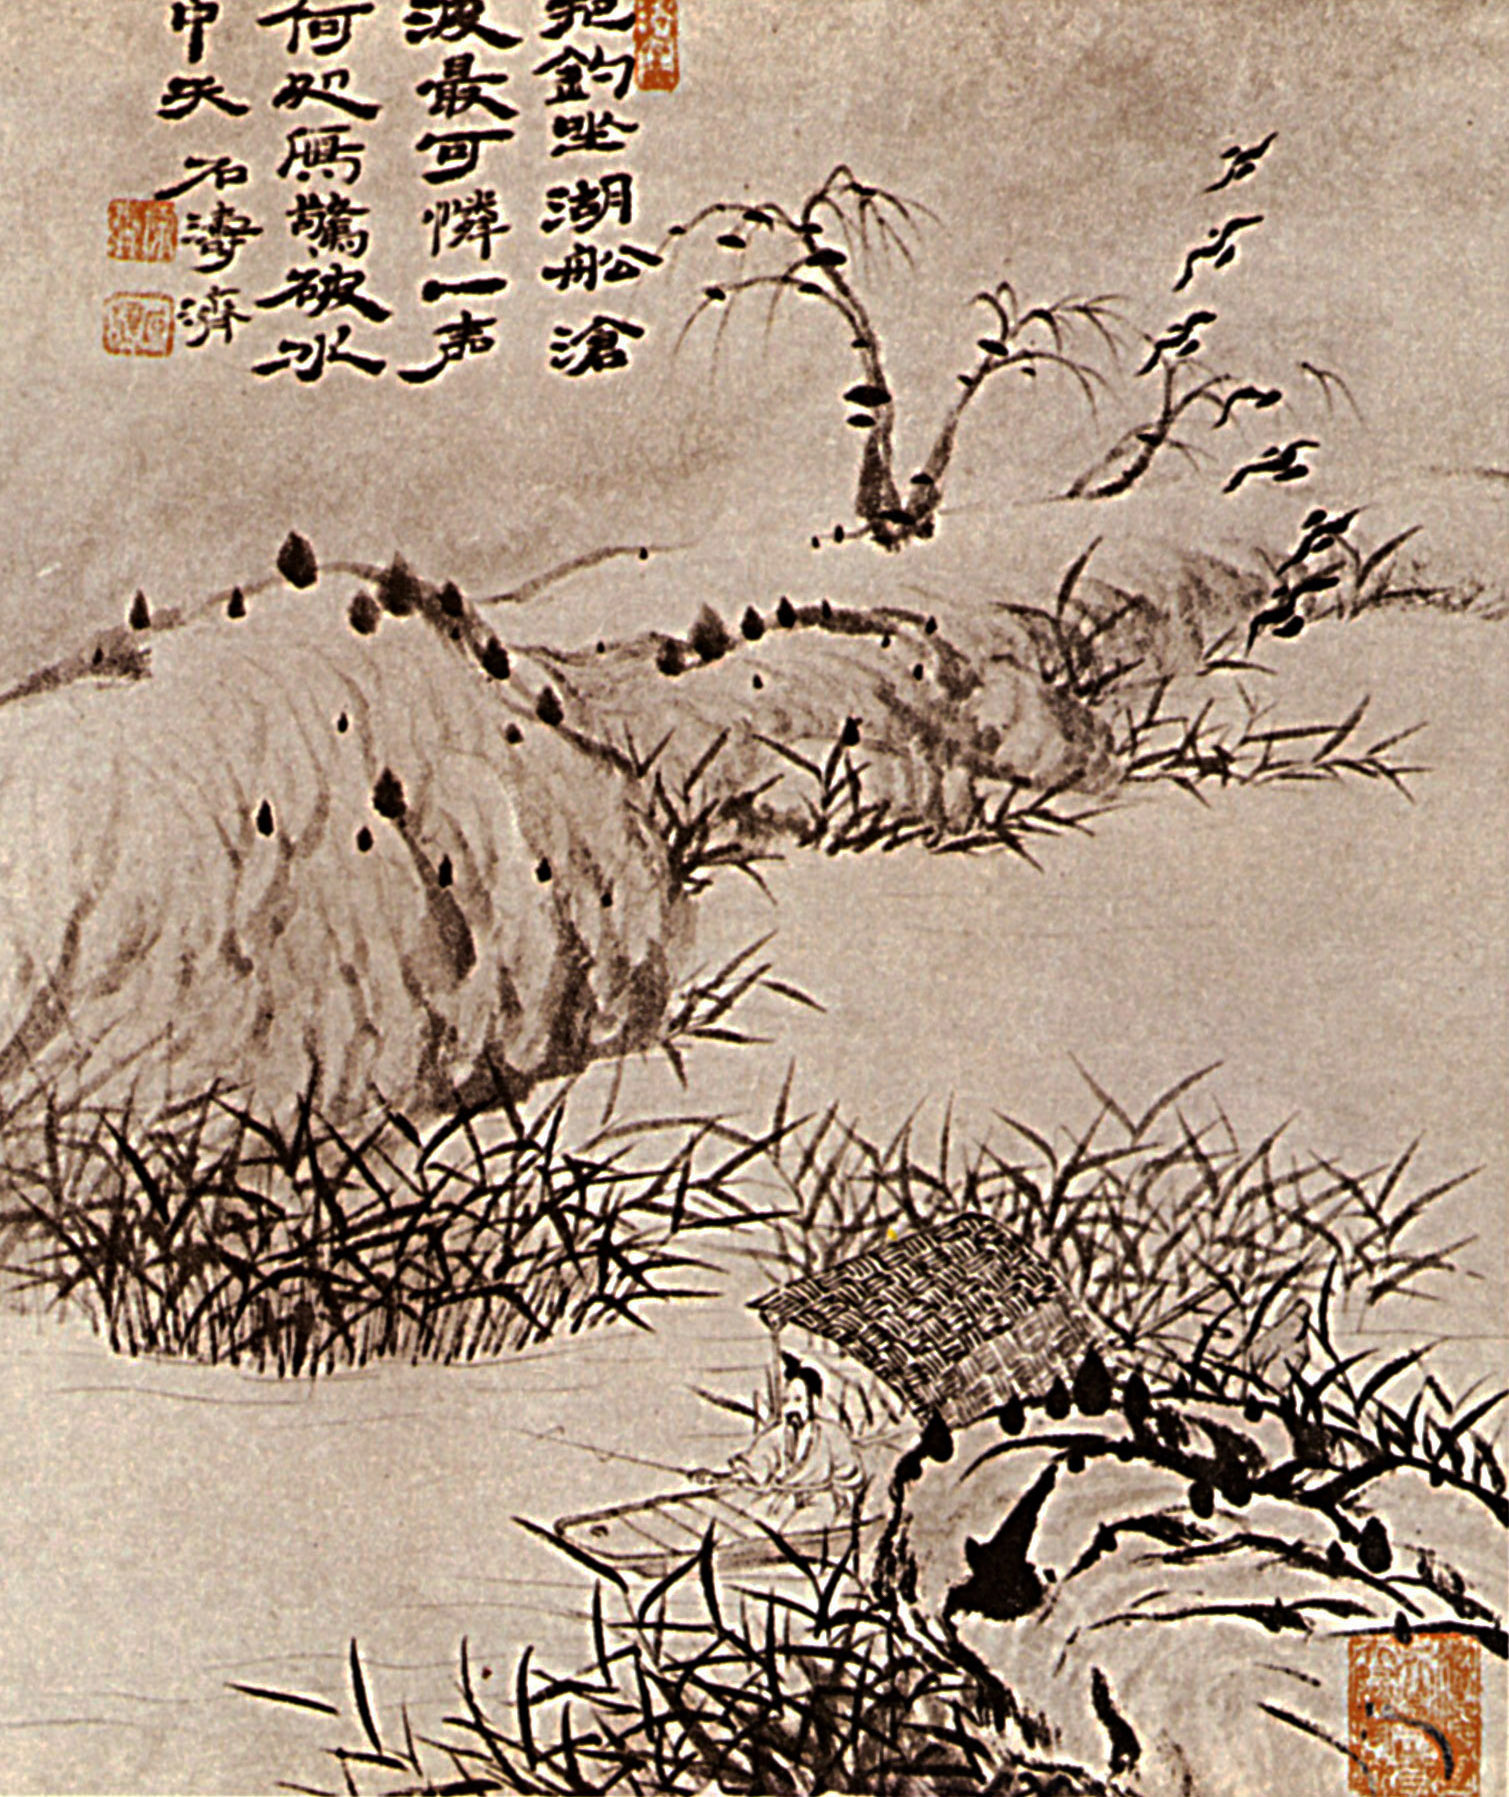 把釣坐湖船滄
波最可憐一声
何处鴈驚破水
中天 石濤濟